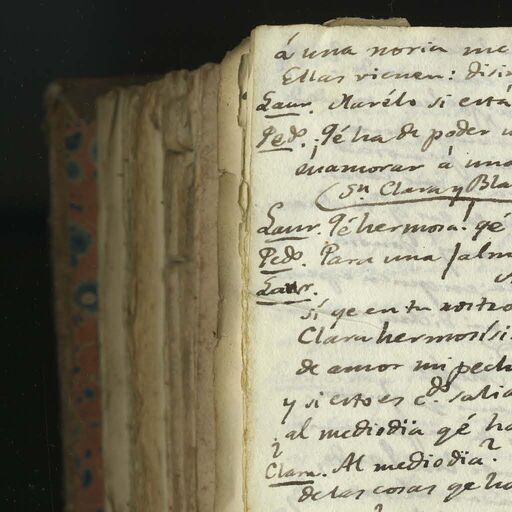 á una noria me
Ellas vienen: disi
Laur. Harélo si está
Ped.º ¡Qé ha de poder u
enamorar á una
(Sn. Clara y Bla
Laur. Qé hermosa! qé
Ped.º Para una jalm
Laur.
si qe en tu rostro
Clara hermosísi
de amor mi pech
y si esto es c.do salia
¿al mediodia qé ha
Clara. Al mediodia?
de las cosas qe ha